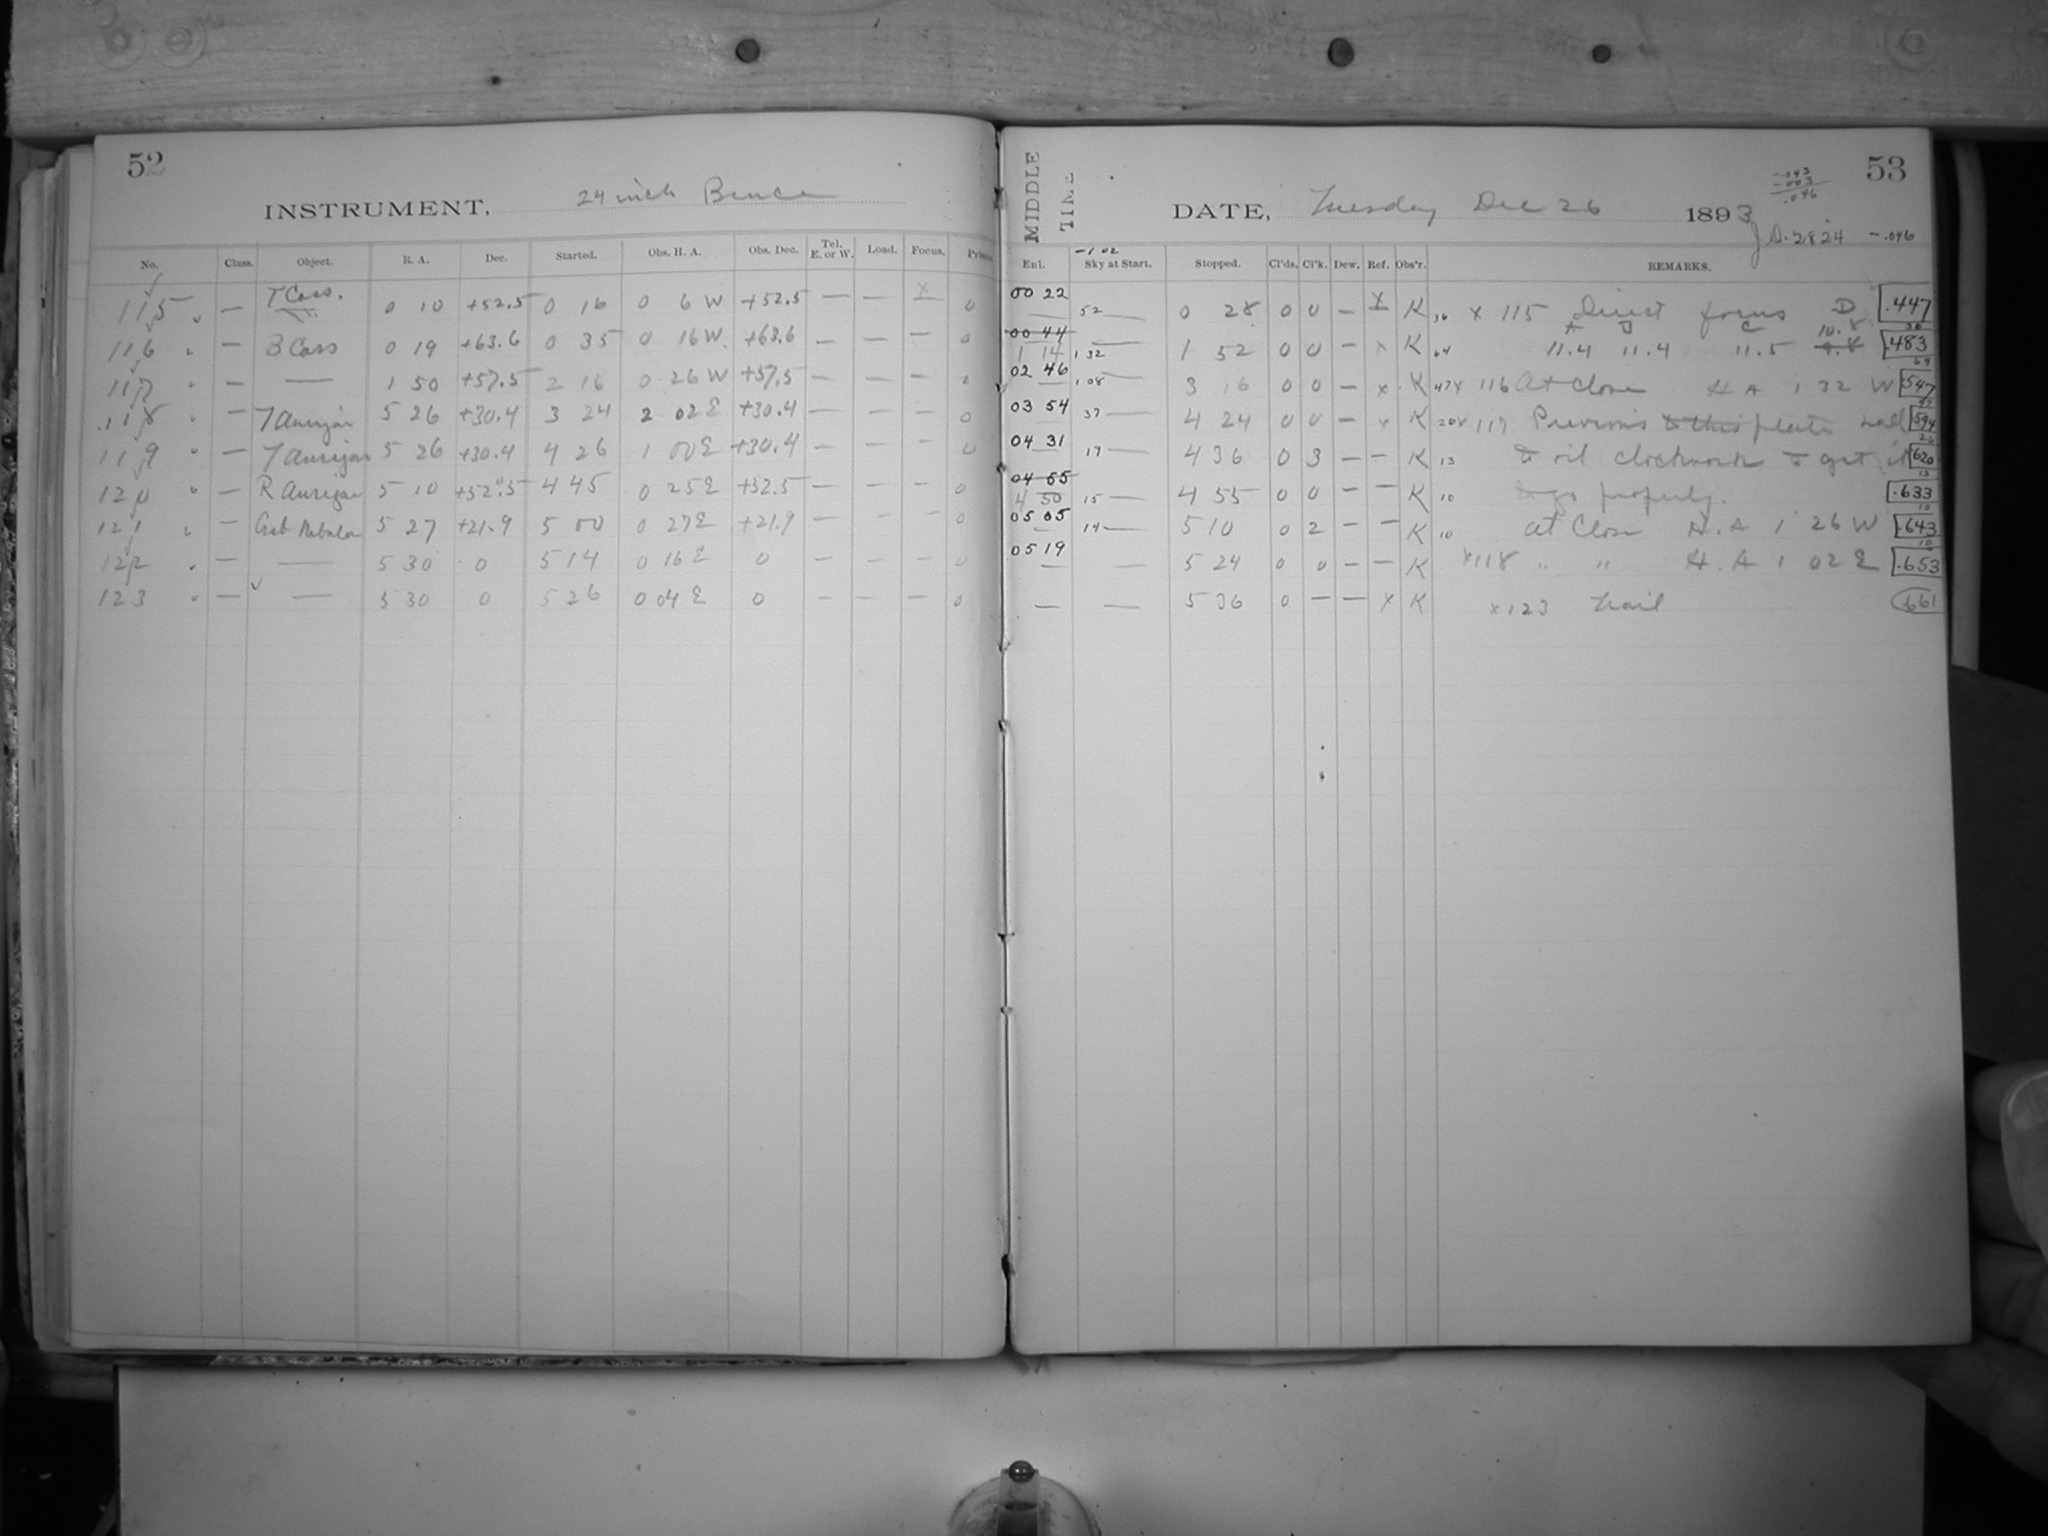 52
INSTRUMENT, 24 inch Bruce
No. Class. Object. R. A. Dec. Started. Obs. H. A. Obs. Dec. Tel. E. or W. Load. Focus.
115 — T Cass. 0 10 +52.5 0 16 0 6 W +52.5 — — x 0
116 — B Cass 0 19 +63.6 0 35 0 16 W. +63.6 — — — 0
117 — — 1 50 +57.5 2 16 0 26 W +57.5 — — — 0
118 — T Aurigae 5 26 +30.4 3 24 2 02 E +30.4 — — — 0
119 — T Aurigae 5 26 +30.4 4 26 1 00 E +30.4 — — — 0
120 — R Aurigae 5 10 +52.5 4 45 0 25 E +52.5 — — — 0
121 — Crab Nebula 5 27 +21.9 5 00 0 27 E +21.9 — — — 0
122 — — 5 30 0 5 14 0 16 E 0 — — — 0
123 — — 5 30 0 5 26 0 04 E 0 — — — 0
MIDDLE TIME
DATE, Tuesday Dec 26 1893
53
-.043
-.003
.046
J.D. 2824 -.046
-1 02
Enl. Sky at Start. Stopped. Cl'ds. Cl'k. Dew. Ref. Obs'r. REMARKS.
00 22 — 52 — 0 28 0 0 — x K 36 x 115 Direct focus D .447
A B C 10.8 36
00 44 1 14 1 32 — 1 52 0 0 — x K 64 11.4 11.4 11.5 9.8 .483
64
02 46 — 1 08 — 3 16 0 0 — x K 47 x 116 At Close H A 1 32 W .547
47
03 54 37 — 4 24 0 0 — x K 26 x 117 Previous to this plate had .594
26
04 31 — 17 — 4 36 0 3 — — K 13 to oil clockwork to get it .620
13
04 55 4 50 15 — 4 55 0 0 — — K 10 to go properly. .633
10
05 05 — 14 — 5 10 0 2 — — K 10 At Close H. A 1 26 W .643
10
05 19 — — 5 24 0 0 — — K x 118 " " H. A 1 02 E .653
— — 5 36 0 — — x K x 123 trail 661